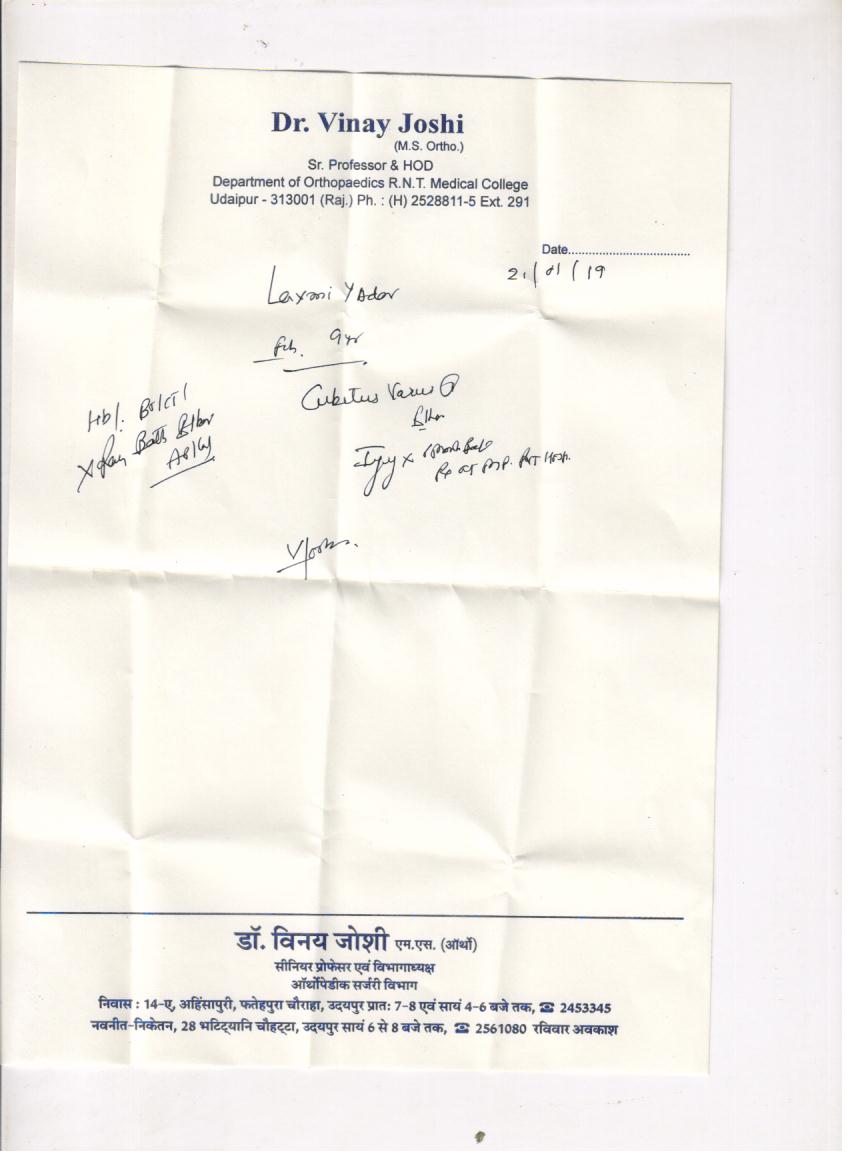 Dr. Vinay Joshi
(M.S. Ortho.)
Sr. Professor & HOD
Department of Orthopaedics R.N.T. Medical College
Udaipur - 313001 (Raj.) Ph. : (H) 2528811-5 Ext. 291
Date..................................
21/01/19
Laxmi Yadav
9yr
Cubitus Varus R
Elbow
Hb/. BT/CT/
X Ray Both Elbow
AP/Lat
Injury x
डॉ. विनय जोशी एम.एस. (ऑर्थो)
सीनियर प्रोफेसर एवं विभागाध्यक्ष
ऑर्थोपेडीक सर्जरी विभाग
निवास : 14-ए, अहिंसापुरी, फतेहपुरा चौराहा, उदयपुर प्रातः 7-8 एवं सायं 4-6 बजे तक, ☎ 2453345
नवनीत-निकेतन, 28 भटिट्यानि चौहट्टा, उदयपुर सायं 6 से 8 बजे तक, ☎ 2561080 रविवार अवकाश